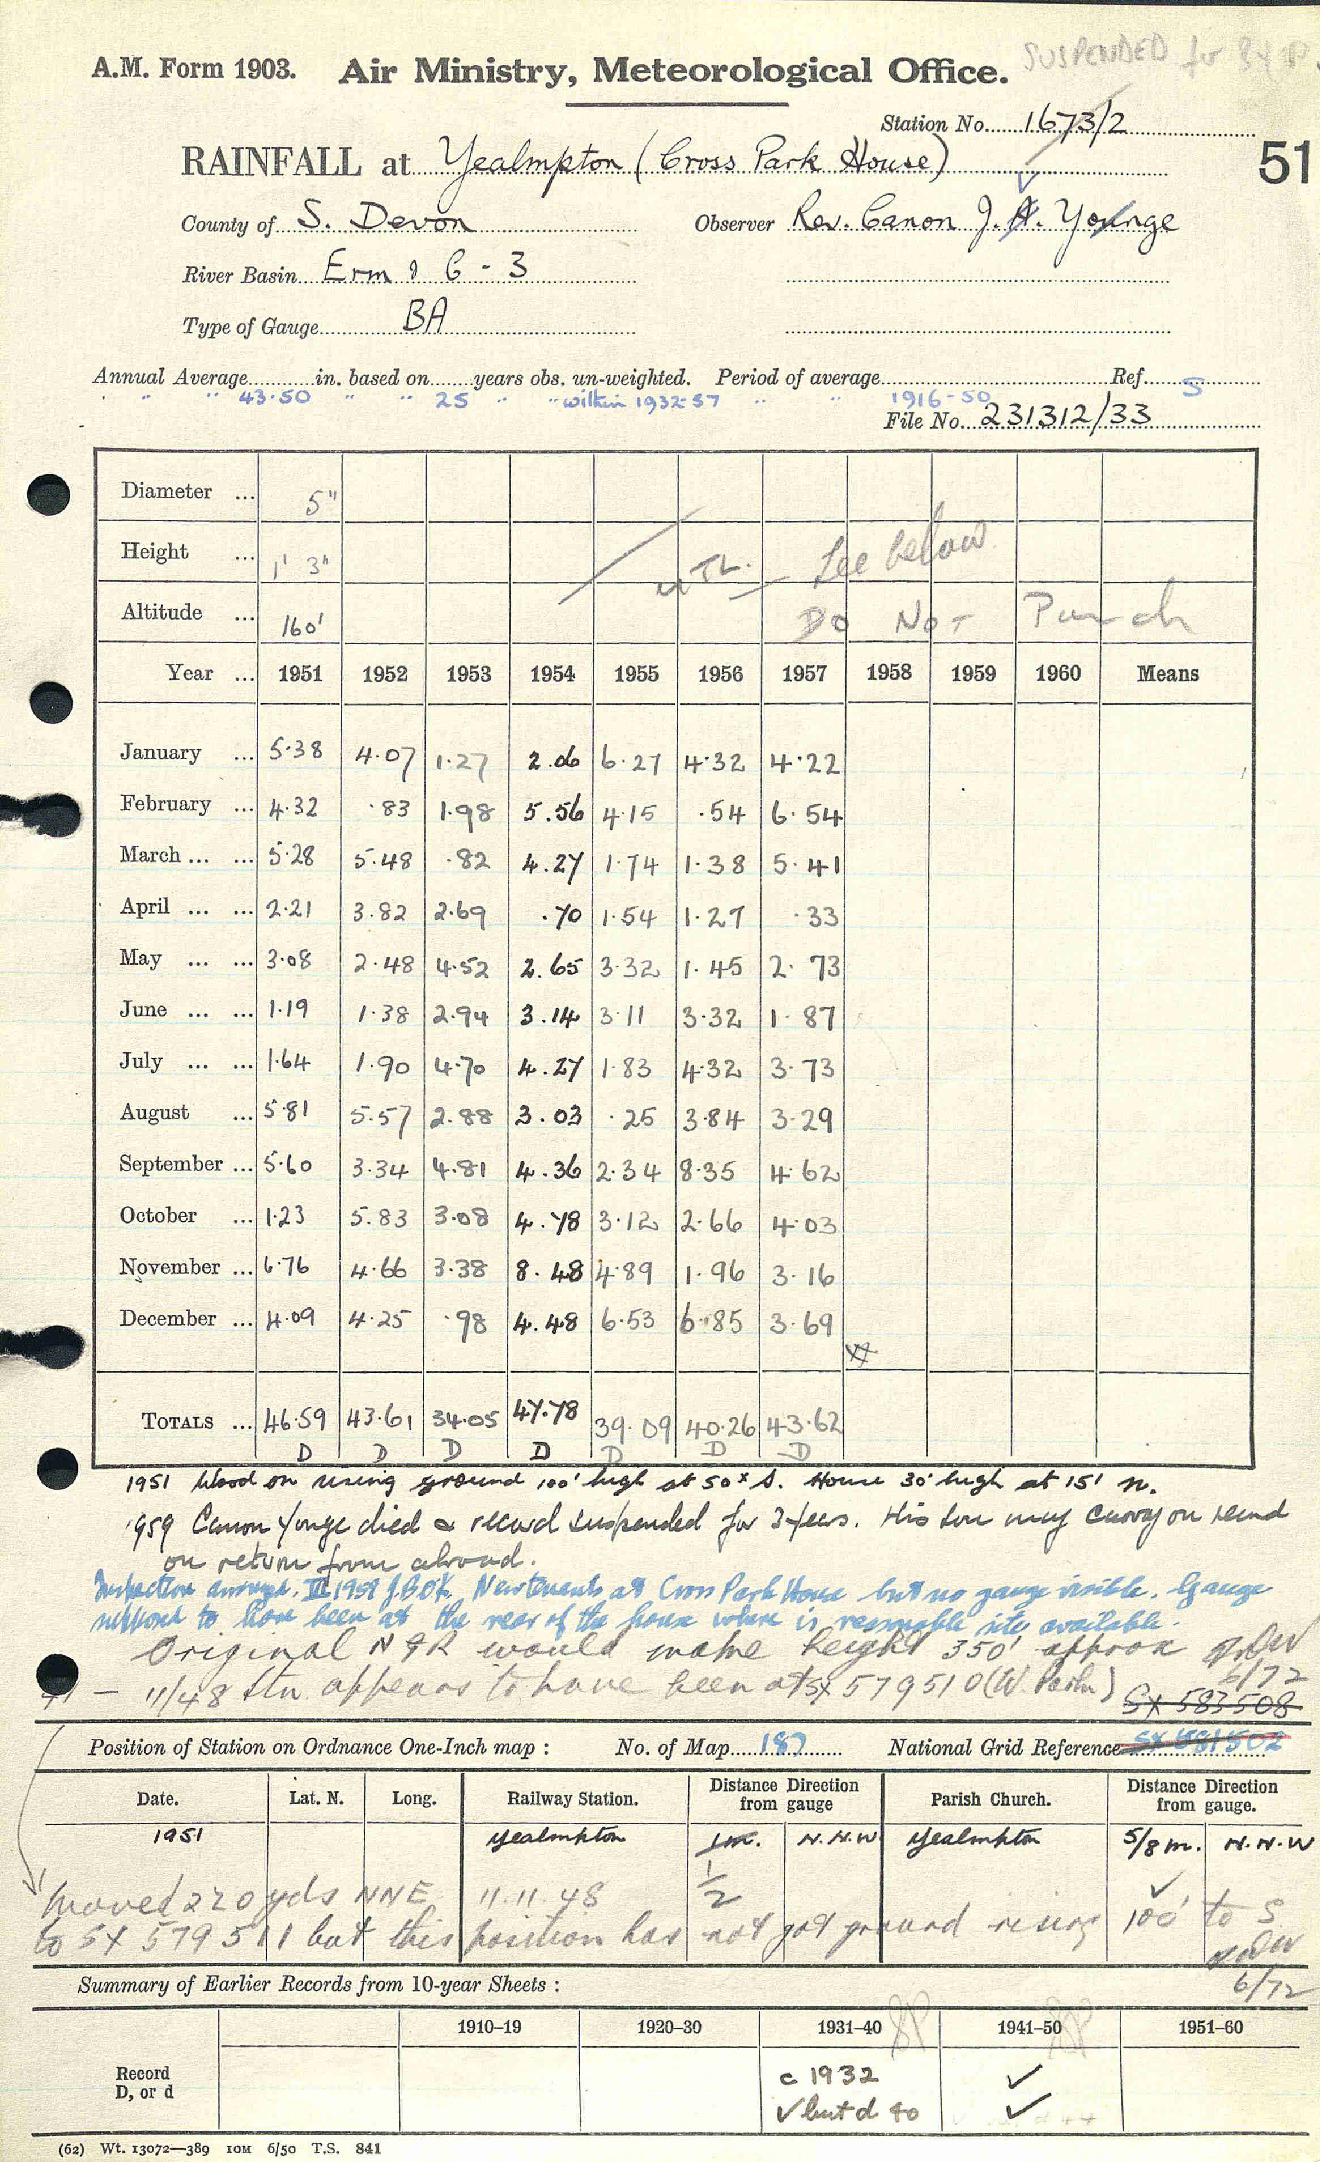 SUSPENDED for
A.M. Form 1903. Air Ministry, Meteorological Office.
Station No. 1673/2
51
RAINFALL at Yealmpton (Cross Park House)
County of S. Devon Observer Rev. Canon J. A. Younge
River Basin Erm & C - 3
Type of Gauge BA
Annual Average in. based on years obs. un-weighted. Period of average Ref.
" " 43.50 " " 25 " " within 1932-57 " " 1916-50 S
File No. 231312/33
Diameter ... 5"
Height ... 1' 3" See below
Altitude ... 160' Do Not Punch
Year ... 1951 1952 1953 1954 1955 1956 1957 1958 1959 1960 Means
January ... 5.38 4.07 1.27 2.06 6.27 4.32 4.22
February ... 4.32 .83 1.98 5.56 4.15 .54 6.54
March ... ... 5.28 5.48 .82 4.27 1.74 1.38 5.41
April ... ... 2.21 3.82 2.69 .70 1.54 1.27 .33
May ... ... 3.08 2.48 4.52 2.65 3.32 1.45 2.73
June ... ... 1.19 1.38 2.94 3.14 3.11 3.32 1.87
July ... ... 1.64 1.90 4.70 4.27 1.83 4.32 3.73
August ... 5.81 5.57 2.88 3.03 .25 3.84 3.29
September ... 5.60 3.34 4.81 4.36 2.34 8.35 4.62
October ... 1.23 5.83 3.08 4.78 3.12 2.66 4.03
November ... 6.76 4.66 3.38 8.48 4.89 1.96 3.16
December ... 4.09 4.25 .98 4.48 6.53 6.85 3.69
TOTALS ... 46.59 43.61 34.05 47.78 39.09 40.26 43.62
D D D D D D D
1951 Wood on rising ground 100' high at 50x S. House 30' high at 15' N.
1959 Canon Yonge died & record suspended for 3 years. His son may carry on record
on return from abroad.
Inspection 1959 New tenants at Cross Park House but no gauge visible. Gauge
supposed to have been at the rear of the house where is reasonable site available.
Original NGR would make height 350' approx
6/72
11/48 Stn appears to have been at SX 579510
SX 583508
Position of Station on Ordnance One-Inch map : No. of Map 187 National Grid Reference SX 581502
Date. Lat. N. Long. Railway Station. Distance Direction from gauge Parish Church. Distance Direction from gauge.
1951 Yealmpton 1m. N.N.W Yealmpton 5/8 m. N.N.W
1/2
Moved 220 yds NNE 11.11.48
to SX 579511 but this position has not got ground rising 100' to S
6/72
Summary of Earlier Records from 10-year Sheets :
1910–19 1920–30 1931–40 1941–50 1951–60
Record
D, or d
c 1932 ✓
✓ but d 40 ✓
(62) Wt. 13072—389 10M 6/50 T.S. 841